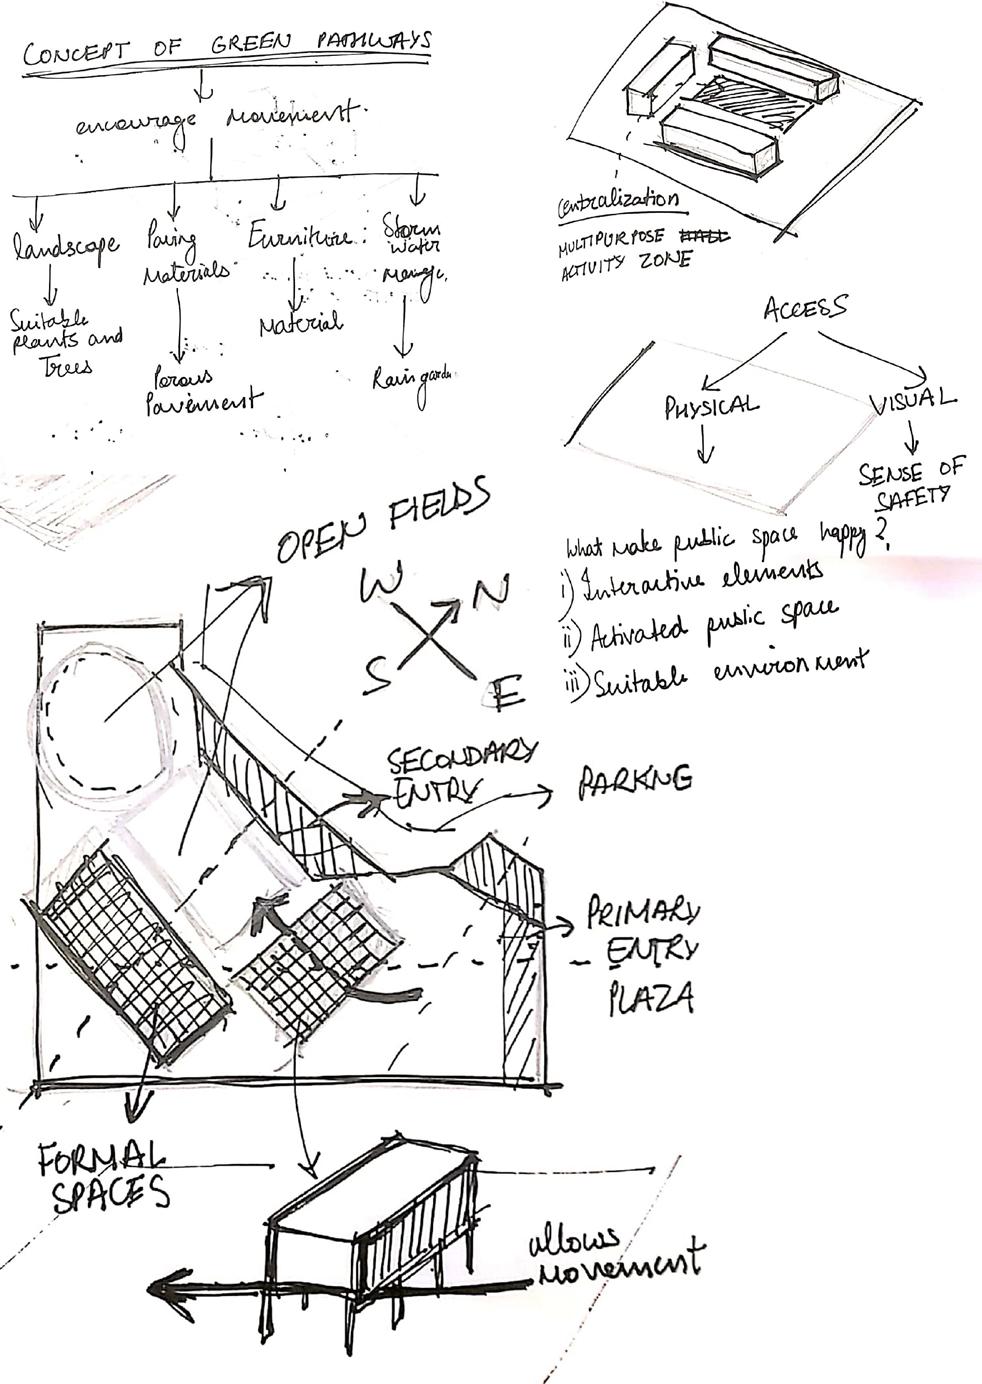 CONCEPT OF GREEN PATHWAYS
encourage movement
landscape
Paving
Materials
Furniture
Storm
water
manage.
Suitable
plants and
Trees
Porous
Pavement
Material
Rain garden
centralization
MULTIPURPOSE HALL
ACTIVITY ZONE
ACCESS
PHYSICAL
VISUAL
SENSE OF
SAFETY
What make public space happy?
i) Interactive elements
ii) Activated public space
iii) Suitable environment
OPEN FIELDS
W
N
S
E
SECONDARY
ENTRY
PARKNG
PRIMARY
ENTRY
PLAZA
FORMAL
SPACES
allows
movement